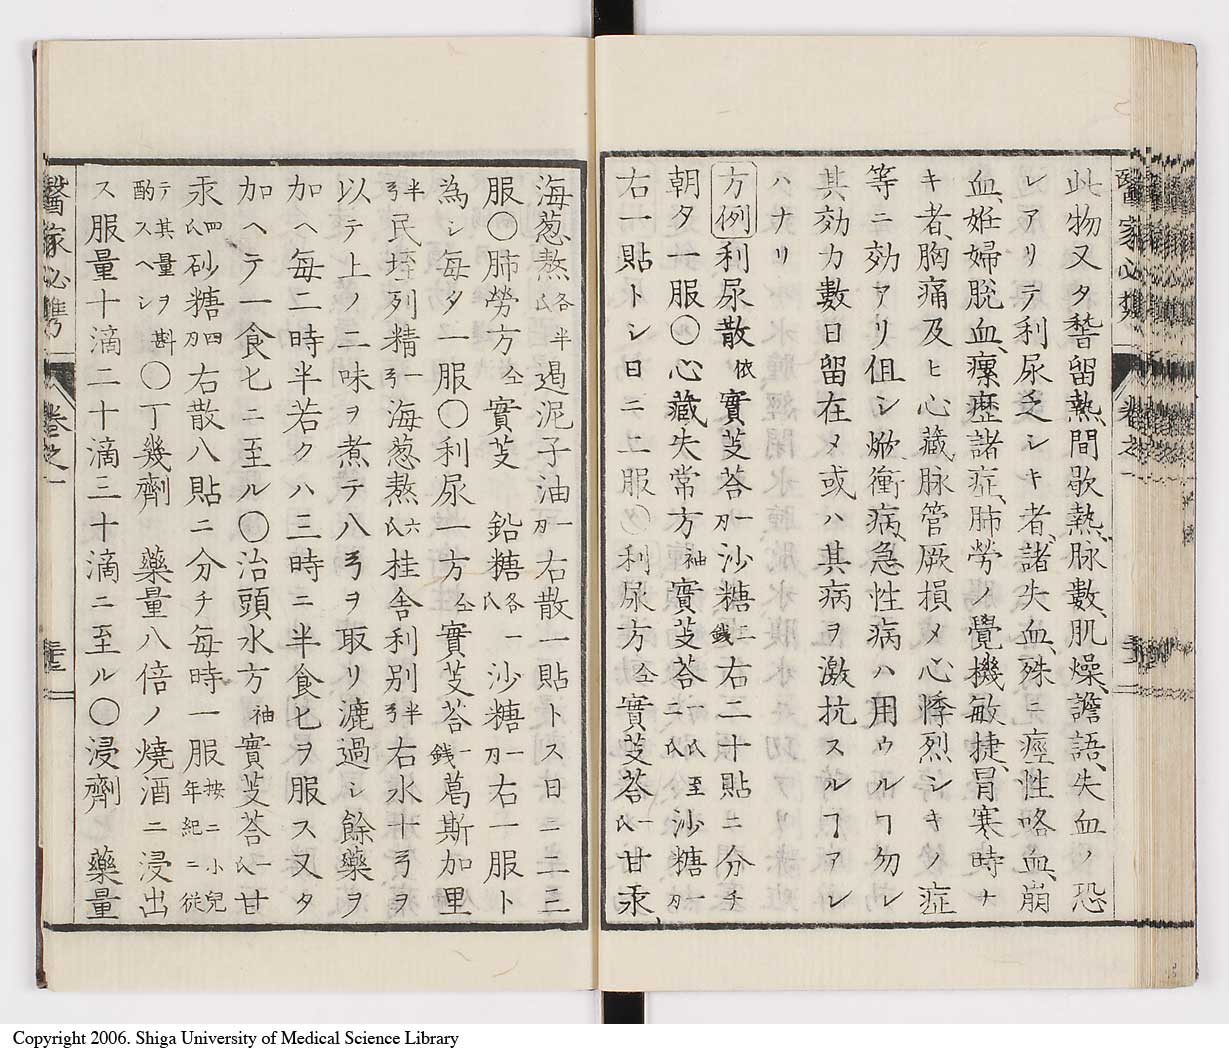 此物又タ稽留熱、間歇熱、脉數、肌燥、譫語、失血ノ恐
レアリテ利尿乏シキ者、諸失血、殊ニ痙性咯血、崩
血、妊婦脫血、瘰癧諸症、肺勞ノ覺機敏捷、冒寒時ナ
キ者、胸痛及ヒ心藏脉管厥損メ心悸烈シキノ症
等ニ效アリ但シ焮衝病、急性病ハ用ウルヿ勿レ
其効力數日留在メ或ハ其病ヲ激抗スルヿアレ
ハナリ
方例 利尿散依實芰荅一刄沙糖二錢右二十貼ニ分チ
朝夕一服〇心藏失常方袖實芰荅一氏至二氏沙糖一刄
右一貼トシ日ニ二服〇利尿方仝實芰荅一氏甘汞
醫家必携 卷之一
海葱熬各半氏遏泥子油一刄右散一貼トス日ニ二三
服〇肺勞方仝實芰 鉛糖各一氏沙糖一刄右一服ト
為シ每夕一服〇利尿一方仝實芰荅一錢葛斯加里
半ヲ民垤列精一ヲ海葱熬六氏桂舍利別半ヲ右水十ヲヲ
以テ上ノ二味ヲ煮テ八ヲヲ取リ漉過シ餘藥ヲ
加ヘ每二時半若クハ三時ニ半食匕ヲ服ス又タ
加ヘテ一食匕ニ至ル〇治頭水方袖實芰荅一氏甘
汞四氏砂糖四刄右散八貼ニ分チ每時一服按ニ小兒年紀ニ從
テ其量ヲ斟酌スヘシ〇丁幾劑 藥量八倍ノ燒酒ニ浸出
ス服量十滴二十滴三十滴ニ至ル〇浸劑 藥量
醫家必携 卷之一
Copyright 2006. Shiga University of Medical Science Library